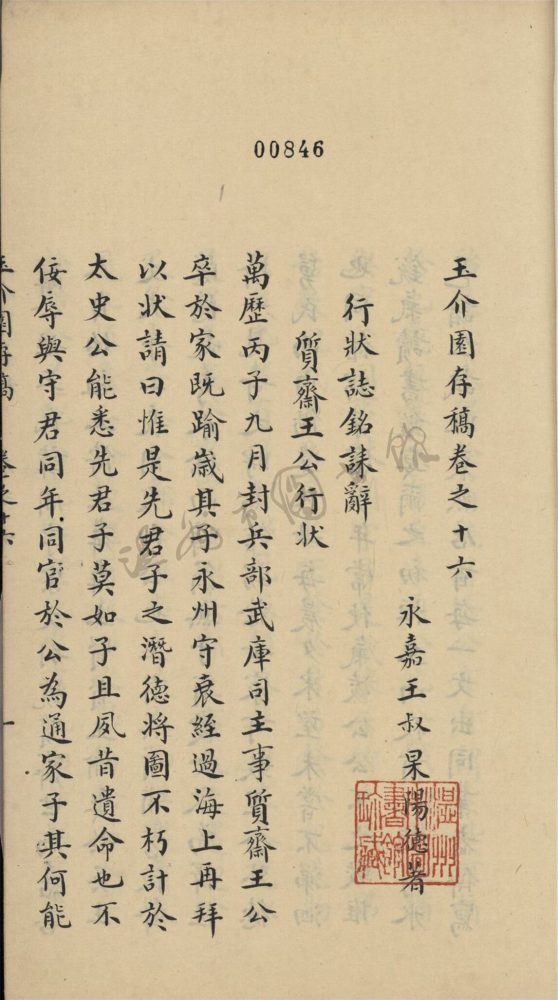 00846
玉介園存稿卷之十六
永嘉王叔杲陽德著
行狀誌銘誄辭
質齋王公行狀
萬歷丙子九月封兵部武庫司主事質齋王公
卒於家既踰歲其子永州守衰絰過海上再拜
以狀請曰惟是先君子之潛德將圖不朽計於
太史公能悉先君子莫如子且夙昔遺命也不
佞辱與守君同年同官於公為通家子其何能
玉介園存稿 卷之十六 一
溫州圖書館珍藏